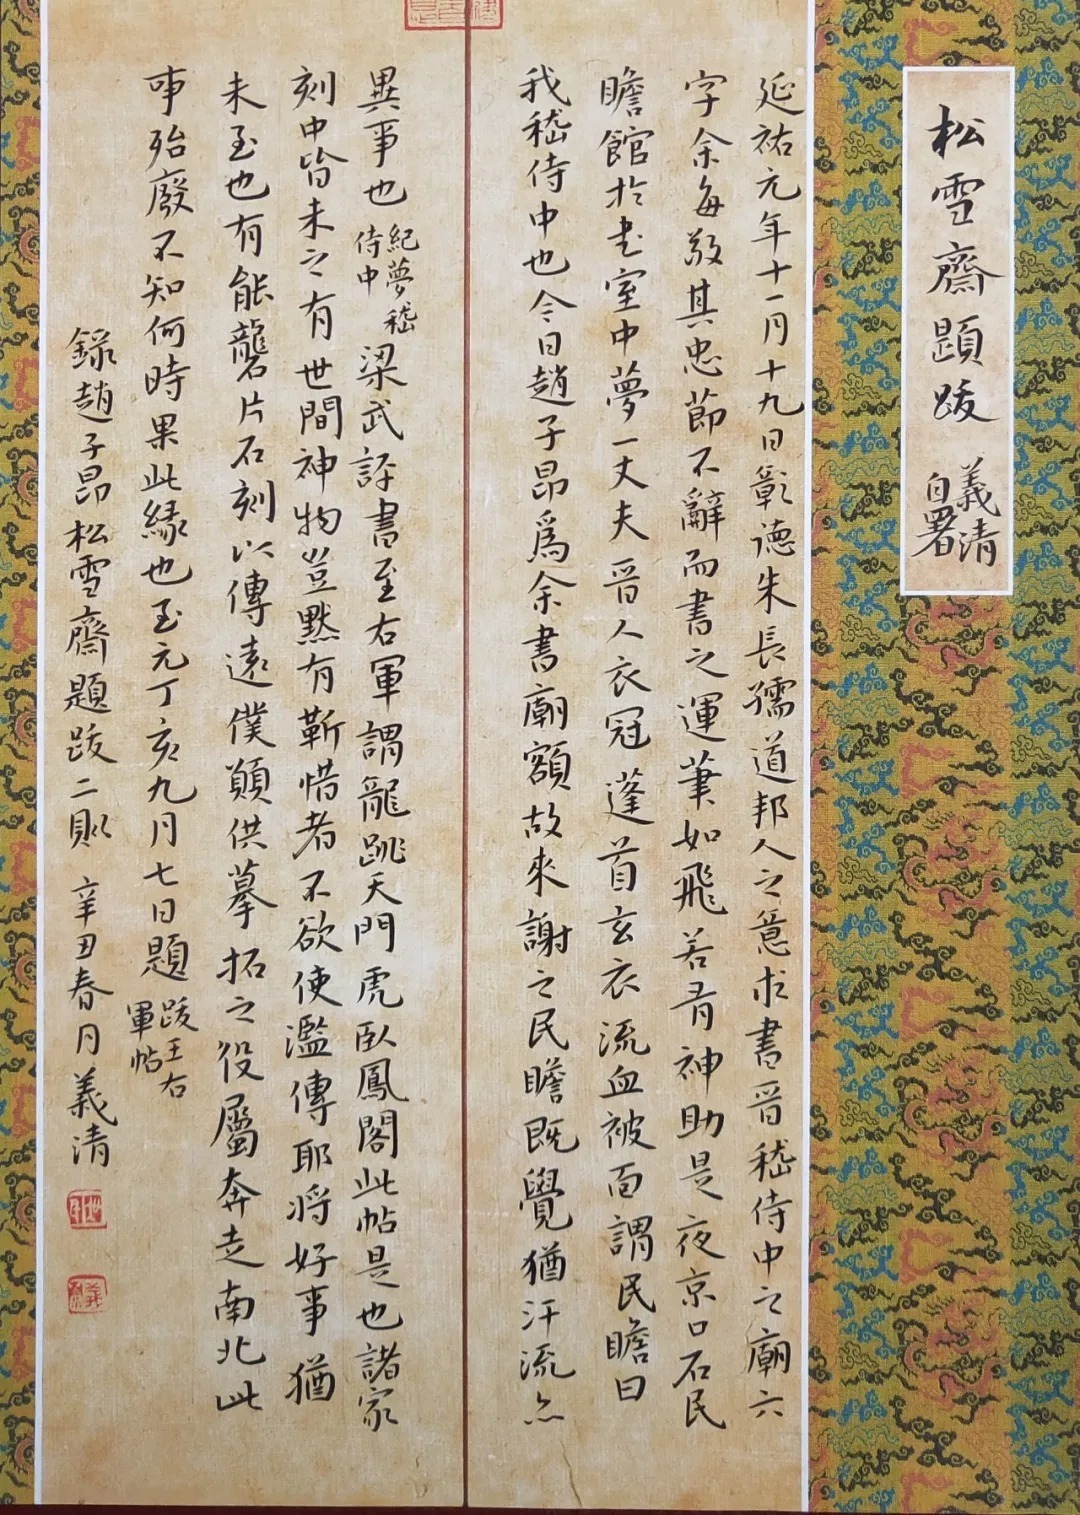 松雪齋題跋
義清
自署
延祐元年十一月十九日彰德朱長孺道邦人之意求書晉嵇侍中之廟六
字余每敬其忠節不辭而書之運筆如飛若有神助是夜京口石民
瞻館於書室中夢一丈夫晉人衣冠蓬首玄衣流血被面謂民瞻曰
我嵇侍中也今日趙子昂爲余書廟額故來謝之民瞻既覺猶汗流亦
異事也
紀夢嵇
侍中
梁武評書至右軍謂龍跳天門虎臥鳳閣此帖是也諸家
刻中皆未之有世間神物豈默有靳惜者不欲使濫傳耶將好事猶
未至也有能礱片石刻以傳遠僕願供摹拓之役屬奔走南北此
事殆廢不知何時果此緣也至元丁亥九月七日題
跋王右
軍帖
錄趙子昂松雪齋題跋二則 辛丑春月義清